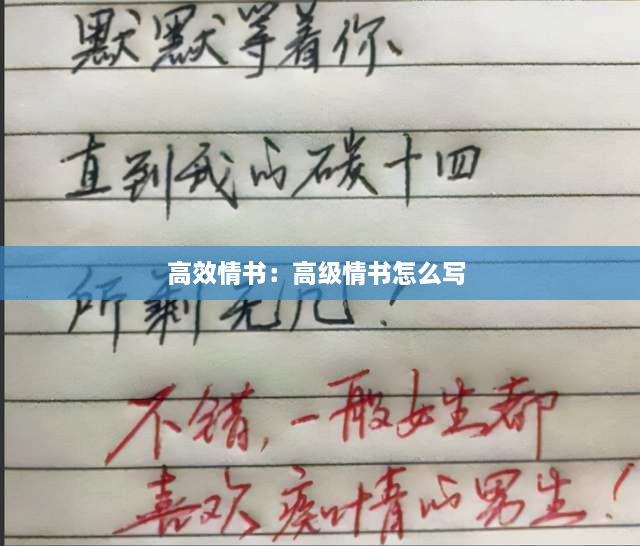 默默等着你、
直到我的碳十四
高效情书：高级情书怎么写
所剩无几！
不错，一般女生都
喜欢痴情的男生！